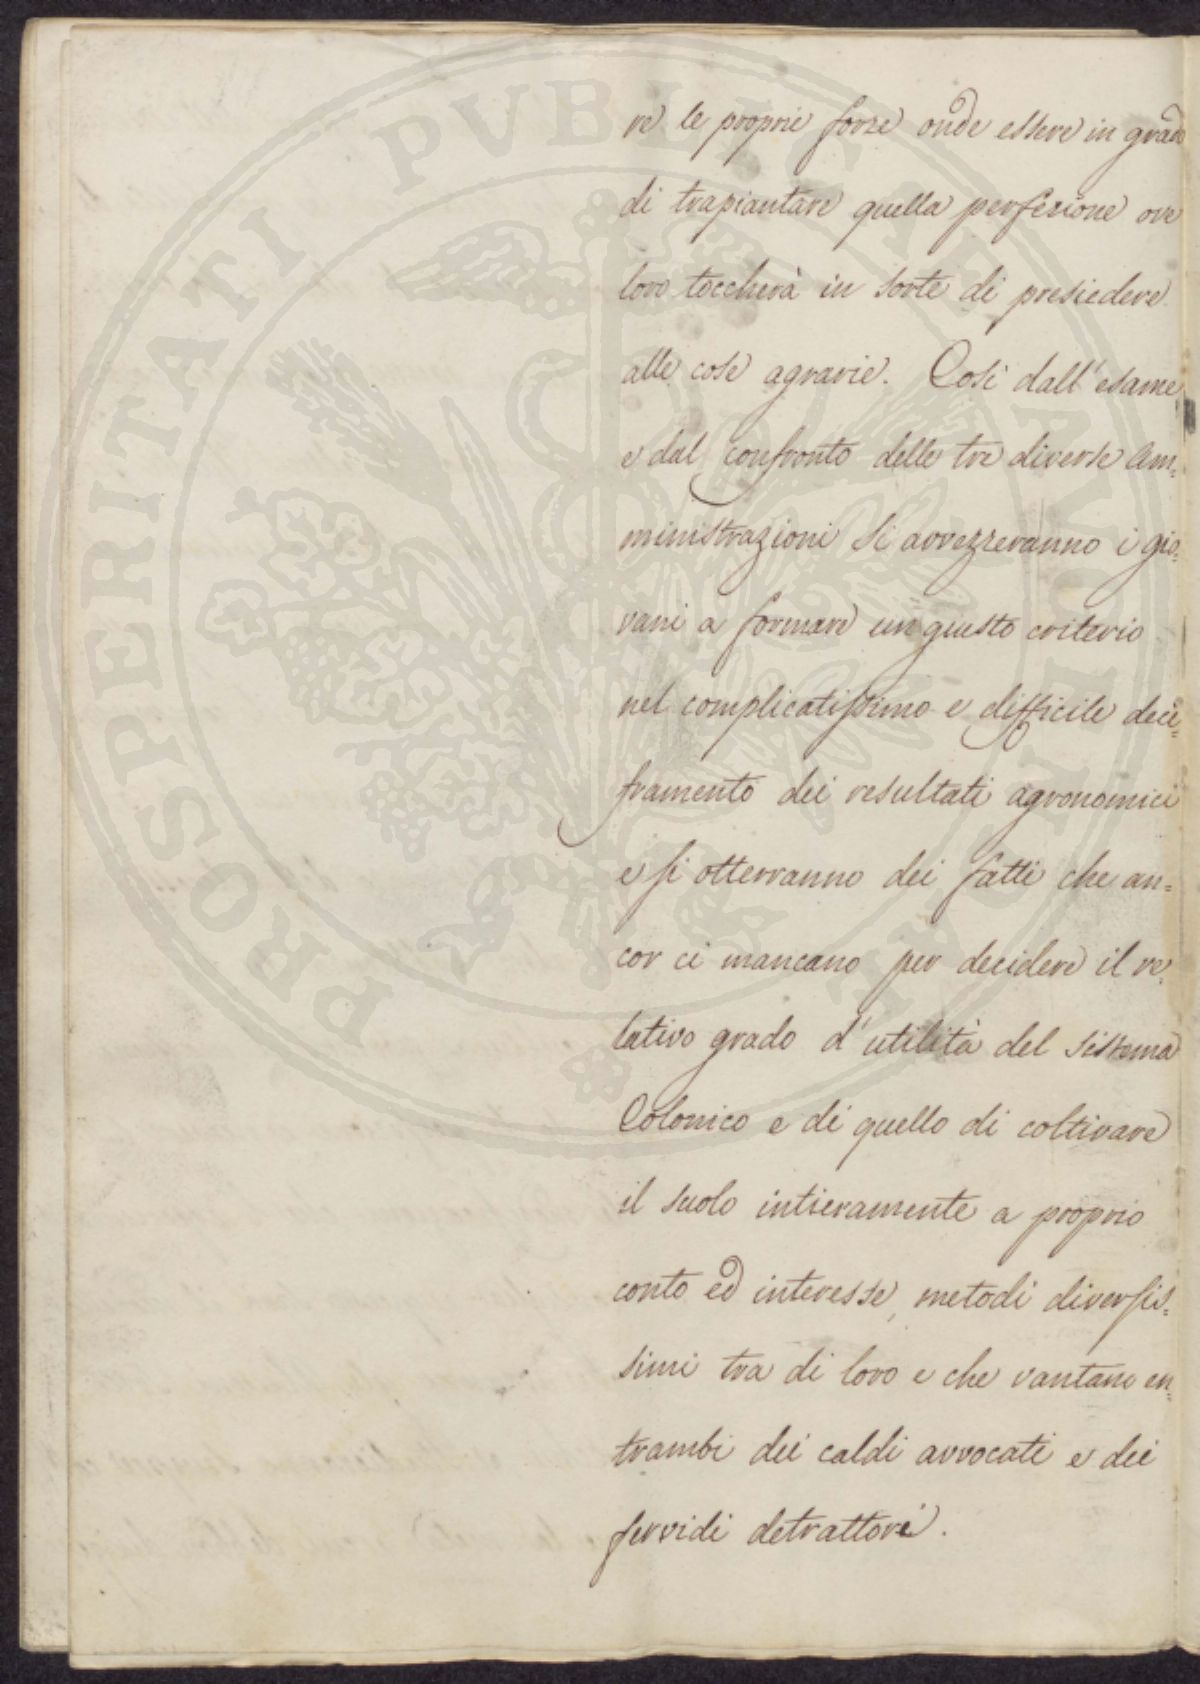 re le proprie forze onde essere in grado
di trapiantare quella perfezione ove
loro toccherà in sorte di presiedere
alle cose agrarie. Così dall'esame
e dal confronto delle tre diverse Am=
ministrazioni si avvezzeranno i gio=
vani a formare un giusto criterio
nel complicatissimo e difficile deci=
framento dei resultati agronomici
e si otterranno dei fatti che an=
cor ci mancano per decidere il re=
lativo grado d'utilità del sistema
Colonico e di quello di coltivare
il suolo intieramente a proprio
conto ed interesse, metodi diversis=
simi tra di loro e che vantano en=
trambi dei caldi avvocati e dei
fervidi detrattori.
PROSPERITATI PUBLICAE AUGENDAE